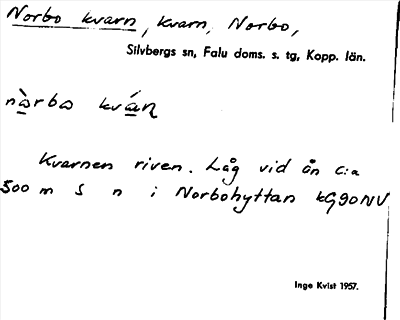 Norbo kvarn, kvarn, Norbo,
Silvbergs sn, Falu doms. s. tg, Kopp. län.
nàrbo kváɳ
Kvarnen riven. Låg vid ån c:a
500 m S n i Norbohyttan kG90NV
Inge Kvist 1957.